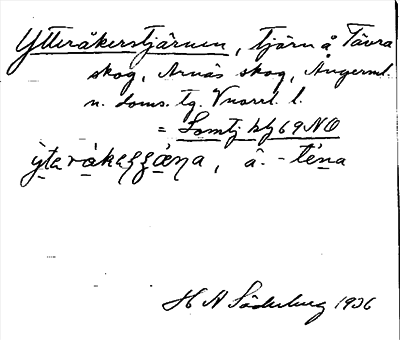 Ytteråkerstjärnen, tjärn å Tävra
skog, Arnäs skog, Ångerml.
n. doms. tg. l.
= Lomtj hfj 69 NO
ỳtɐråkaʂʂǽŋa, â. -téna
H A Söderberg 1936